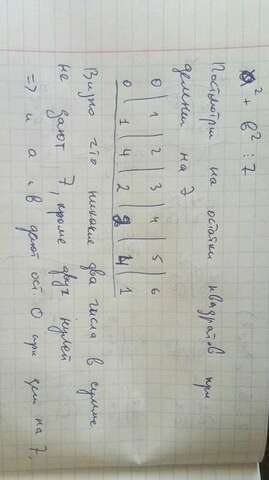 a² + b² ⋮ 7
Посмотрим на остатки квадратов при
делении на 7
0 | 1 | 2 | 3 | 4 | 5 | 6
0 | 1 | 4 | 2 | 2 | 4 | 1
Видно что никакие два числа в сумме
не дают 7, кроме двух нулей
=> и a и b дают ост. 0 при дел на 7,